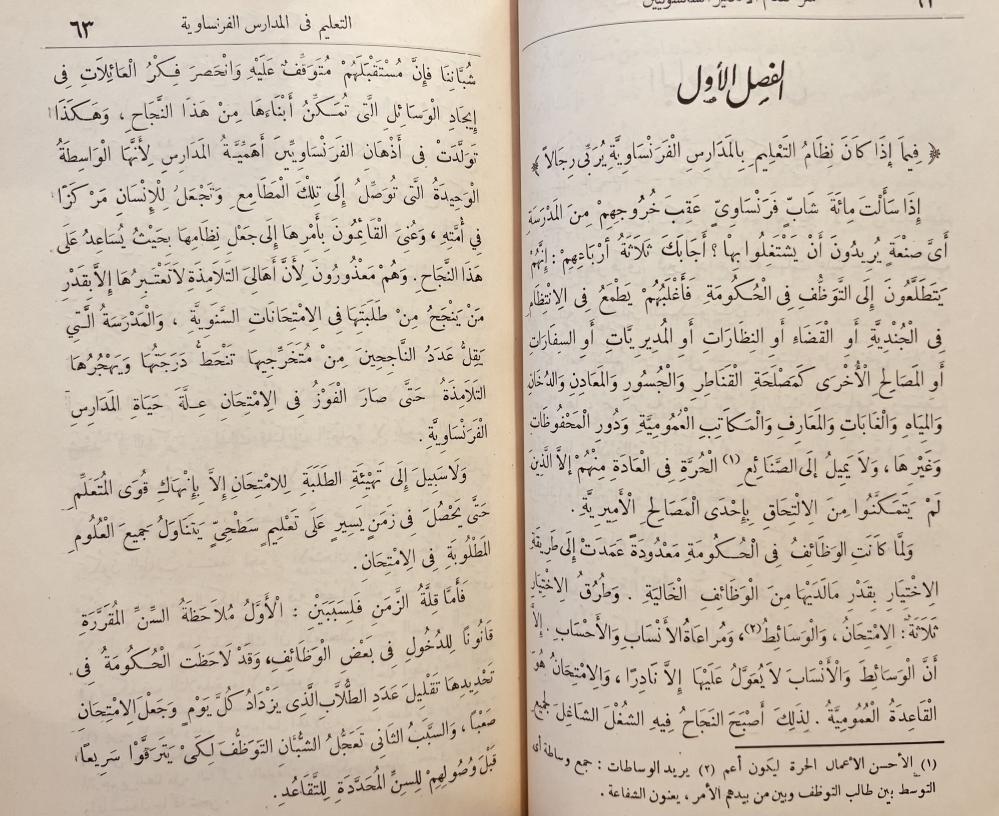 الفصل الأول
﴿ فِيمَا إِذَا كَانَ نِظَامُ التَّعْلِيمِ بِالْمَدَارِسِ الْفَرَنْسَاوِيَّةِ يُرَبِّى رِجَالاً ﴾
إِذَا سَأَلْتَ مِائَةَ شَابٍّ فَرَنْسَاوِىٍّ عَقِبَ خُرُوجِهِمْ مِنَ الْمَدْرَسَةِ
أَىَّ صَنْعَةٍ يُرِيدُونَ أَنْ يَشْتَغِلُوا بِهَا؟ أَجَابَكَ ثَلاَثَةُ أَرْبَاعِهِمْ : إِنَّهُمْ
يَتَطَلَّعُونَ إِلَى التَّوَظُّفِ فِى الْحُكُومَةِ فَأَغْلَبُهُمْ يَطْمَعُ فِى الاِنْتِظَامِ
فِى الْجُنْدِيَّةِ أَوِ الْقَضَاءِ أَوِ النِظَارَاتِ أَوِ الْمُدِيرِيَّاتِ أَوِ السِفَارَاتِ
أَوِ الْمَصَالِحِ الْأُخْرَى كَمَصْلَحَةِ الْقَنَاطِرِ وَالْجُسُورِ وَالْمَعَادِنِ وَالدُخَانِ
وَالْمِيَاهِ وَالْغَابَاتِ وَالْمَعَارِفِ وَالْمَكَاتِبِ الْعُمُومِيَّةِ وَدُورِ الْمَحْفُوظَاتِ
وَغَيْرِهَا، وَلاَ يَمِيلُ إِلَى الصَّنَائِعِ (١) الْحُرَّةِ فِى الْعَادَةِ مِنْهُمْ إِلاَّ الَّذِينَ
لَمْ يَتَمَكَّنُوا مِنَ الاِلْتِحَاقِ بِإِحْدَى الْمَصَالِحِ الْأَمِيرِيَّةِ .
وَلَمَّا كَانَتِ الْوَظَائِفُ فِى الْحُكُومَةِ مَعْدُودَةً عَمَدَتْ إِلَى طَرِيقَةِ
الاِخْتِيَارِ بِقَدْرِ مَالَدَيْهَا مِنَ الْوَظَائِفِ الْخَالِيَةِ . وَطُرُقُ الاِخْتِيَارِ
ثَلاَثَةٌ : الاِمْتِحَانُ، وَالْوَسَائِطُ (٢)، وَمُرَاعَاةُ الْأَنْسَابِ وَالْأَحْسَابِ . إِلاَّ
أَنَّ الْوَسَائِطَ وَالْأَنْسَابَ لاَ يُعَوَّلُ عَلَيْهَا إِلاَّ نَادِرًا، وَالاِمْتِحَانُ هُوَ
الْقَاعِدَةُ الْعُمُومِيَّةُ . لِذَلِكَ أَصْبَحَ النَّجَاحُ فِيهِ الشُغْلَ الشَاغِلَ لِجَمِيعِ
(١) الأحسن الأعمال الحرة ليكون أعم (٢) يريد الوساطات : جمع وساطة أى
التوسط بين طالب التوظف وبين من بيدهم الأمر، يعنون الشفاعة .
التعليم فى المدارس الفرنساوية ٦٣
شُبَّانِنَا فَإِنَّ مُسْتَقْبَلَهُمْ مُتَوَقِّفٌ عَلَيْهِ وَانْحَصَرَ فِكْرُ الْعَائِلاَتِ فِى
إِيجَادِ الْوَسَائِلِ الَّتِى تُمَكِّنُ أَبْنَاءَهَا مِنْ هَذَا النَّجَاحِ ، وَهَكَذَا
تَوَلَّدَتْ فِى أَذْهَانِ الفَرَنْسَاوِيِّينَ أَهَمِّيَّةُ الْمَدَارِسِ لِأَنَّهَا الْوَاسِطَةُ
الْوَحِيدَةُ الَّتِى تُوَصِّلُ إِلَى تِلْكَ الْمَطَامِعِ وَتَجْعَلُ لِلْإِنْسَانِ مَرْكَزًا
فِى أُمَّتِهِ ، وَعُنِىَ الْقَائِمُونَ بِأَمْرِهَا إِلَى جَعْلِ نِظَامِهَا بِحَيْثُ يُسَاعِدُ عَلَى
هَذَا النَّجَاحِ . وَهُمْ مَعْذُورُونَ لِأَنَّ أَهَالِىَ التَّلاَمِذَةِ لاَ تَعْتَبِرُهَا إِلاَّ بِقَدْرِ
مَنْ يَنْجَحُ مِنْ طَلَبَتِهَا فِى الاِمْتِحَانَاتِ السَّنَوِيَّةِ ، وَالْمَدْرَسَةُ الَّتِى
يَقِلُّ عَدَدُ النَّاجِحِينَ مِنْ مُتَخَرِّجِيهَا تَنْحَطُّ دَرَجَتُهَا وَيَهْجُرُهَا
التَّلاَمِذَةُ حَتَّى صَارَ الْفَوْزُ فِى الاِمْتِحَانِ عِلَّةَ حَيَاةِ الْمَدَارِسِ
الْفَرَنْسَاوِيَّةِ .
وَلاَ سَبِيلَ إِلَى تَهْيِئَةِ الطَّلَبَةِ لِلاِمْتِحَانِ إِلاَّ بِإِنْهَاكِ قُوَى الْمُتَعَلِّمِ
حَتَّى يَحْصُلَ فِى زَمَنٍ يَسِيرٍ عَلَى تَعْلِيمٍ سَطْحِىٍّ يَتَنَاوَلُ جَمِيعَ الْعُلُومِ
الْمَطْلُوبَةِ فِى الاِمْتِحَانِ .
فَأَمَّا قِلَّةُ الزَّمَنِ فَلِسَبَبَيْنِ : الْأَوَّلُ مُلاَحَظَةُ السِّنِّ الْمُقَرَّرَةِ
قَانُونًا لِلدُخُولِ فِى بَعْضِ الْوَظَائِفِ، وَقَدْ لاَحَظَتِ الْحُكُومَةُ فِى
تَحْدِيدِهَا تَقْلِيلَ عَدَدِ الطُّلاَّبِ الَّذِى يَزْدَادُ كُلَّ يَوْمٍ وَجَعْلَ الاِمْتِحَانِ
صَعْبًا، وَالسَّبَبُ الثَّانِى تَعَجُّلُ الشُّبَّانِ التَوَظُّفَ لِكَىْ يَتَرَقَّوْا سَرِيعًا،
قَبْلَ وُصُولِهِمْ لِلسِنِّ الْمُحَدَّدَةِ لِلتَّقَاعُدِ .